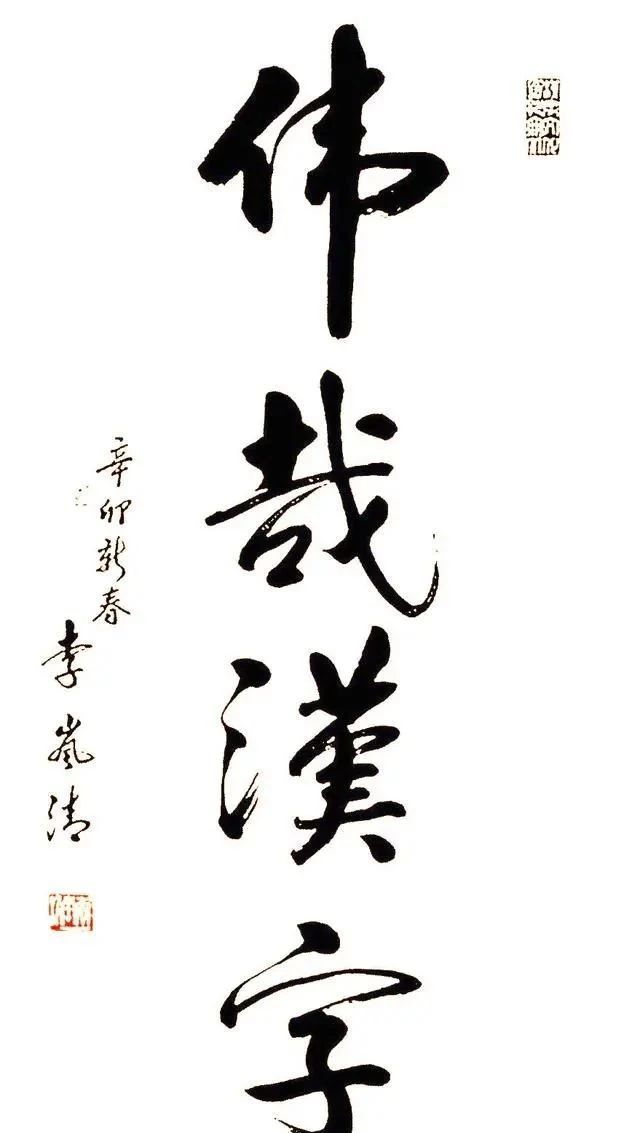 伟哉漢字
辛卯新春
李嵐清